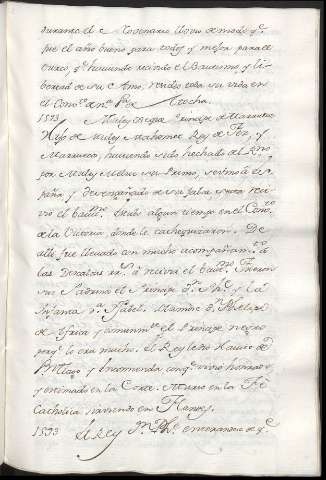 durante el Novenario llovio de modo q.e
fue el año bueno para todos y mejor para el
turco, q.e haviendo recivido el Bautismo, y li-
bertad de su Amo, rindio toda su vida en
el Conv.to de n.ra S.ra de Atocha.
1593 Muley Xeque Principe de Marruecos
Hijo de Muley Mahomet Rey de Fez, y
Marruecos, haviendo sido hechado del Rno
por Muley Moluc su Primo, se vino a Es-
paña y desengañado de su falsa secta reci-
vio el bautis.mo Estubo algun tiempo en el Conv.to
de la Victoria donde le cathequizaron. De
alli fue llevado con mucho acompañam.to a
las Descalzas r.s a recivir el bau.mo Fueron
sus Padrinos el Principe D.n Phe. y la
Infanta D.a Ysabel. Llamose D.n Phelipe
de Africa y comunm.te el Principe negro
porq.e lo era mucho. El Rey le dio Havito de
Santiago y Encomienda con q.e vivio honrado
y estimado en la Corte. Murio en la Fe
Catholica sirviendo en Flandes.
1593 El Rey D.n Ph.e en memoria de q.e